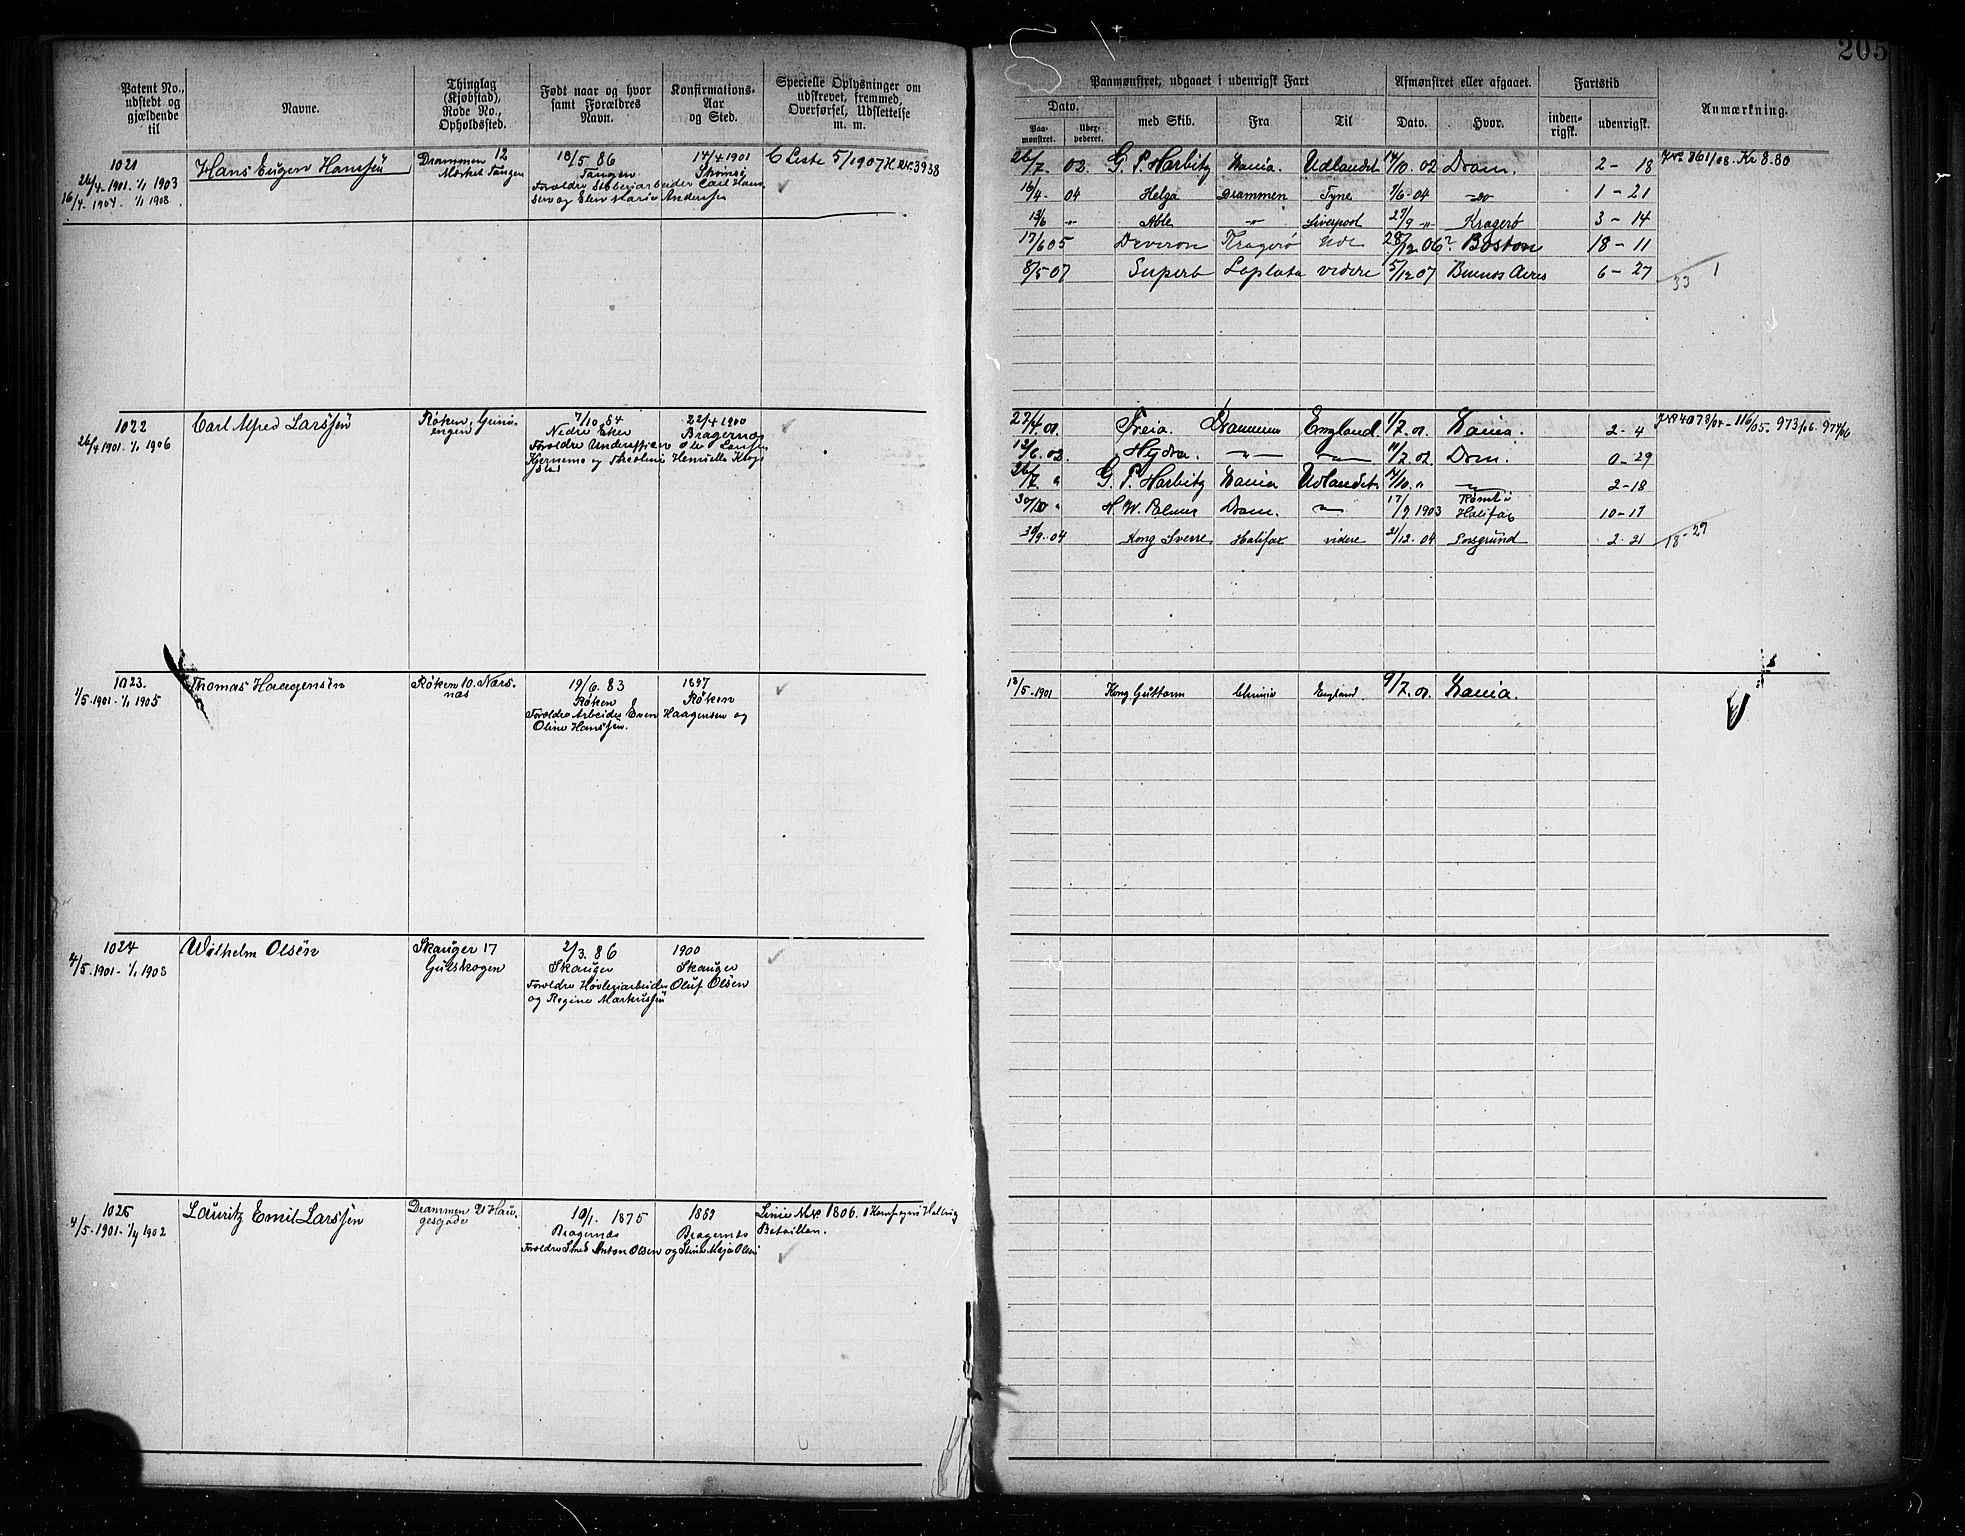 205
Patent No., udstedt og gjældende til
Navne.
Thinglag (Kjøbstad), Rode No., Opholdssted.
Født naar og hvor samt Forældres Navn.
Konfirmations- Aar og Sted.
Specielle Oplysninger om udskrevet, fremmed, Overførsel, Udslettelse m. m.
Paamønstret, udgaaet i udenrigsk Fart
Dato.
Paa- mønstret.
med Skib.
Fra
Til
Afmønstret eller afgaaet.
Dato.
Hvor.
Fartstid
inden- rigsk.
udenrigsk.
Anmærkning.
1021
26/4 1901. 1/1 1903
16/4 1904. 1/1 1908.
Hans Eugen Hanssen
Drammen 12
Tangen
18/5 86
Tangen
Forældre
Carl Hans
sen og Elen Marie Anderssen
14/4 1901
Strømsø
C Liste 5/1907 H. Nr. 3938
26/7. 02. G. P. Harbitz Xania. Udlandet 14/10 02 Dram. 2 - 18 Jr. 861/08. Kr 8.80
16/4. 04 Helga Drammen Tyne 7/6 04 -do- 1 - 21
13/6 " Able -"- Liverpool 27/9 -"- Kragerø 3 - 14
17/6 05 Deveron Kragerø Udl 28/12 06 Boston 18 - 11
8/5 07 Superb Laplata videre 5/12 07 Buenos Aires 6 - 27
33 1
1022
26/4 1901. 1/1 1906
Carl Alfred Larssen
Røken,
engen
7/10. 84
Nedre Eker
Forældre
og Henriette
22/4 1900
Bragernæs
Ole Larssen
27/4 01. Freia. Drammen England. 1/7. 01. Xania. 2 - 4
12/6. 02. Hydra. -"- -"- 11/7. 02. Dram. 0 - 29
26/7. " G. P. Harbitz Xania Udlandet 14/10. " -"- 2 - 18
30/10 " Dram. -"- 17/9 1903 Halifax 10 - 17
30/9. 04 Kong Sverre Halifax videre 21/12. 04 Porsgrund 2. 21
18 - 29
1023.
1/5. 1901. 1/1 1905
Thomas Haagensen
Røken 10. Nærs-
næs
19/6. 83
Røken
Forældre Arbeider Even Haagensen og
Oline Hanssen.
1897
Røken
18/5. 1901 Kong Guttorm England 9/7. 01. Xania.
1024
4/5. 1901. 1/1 1908
Wilhelm Olsen
Skauger 17
Gulskogen
2/3. 86
Skauger
Forældre Høvleriarbeider Oluf Olsen
og Regine Markussen
1900
Skauger
1025
4/5. 1901. 1/4 1902
Lauritz Emil Larssen
Drammen 21 Hau-
gesgade
10/1. 1875
Bragernæs
Forældre Smed Anton Olsen og Olsen
1889
Bragernæs
Linie No. 1806.
Bataillon.